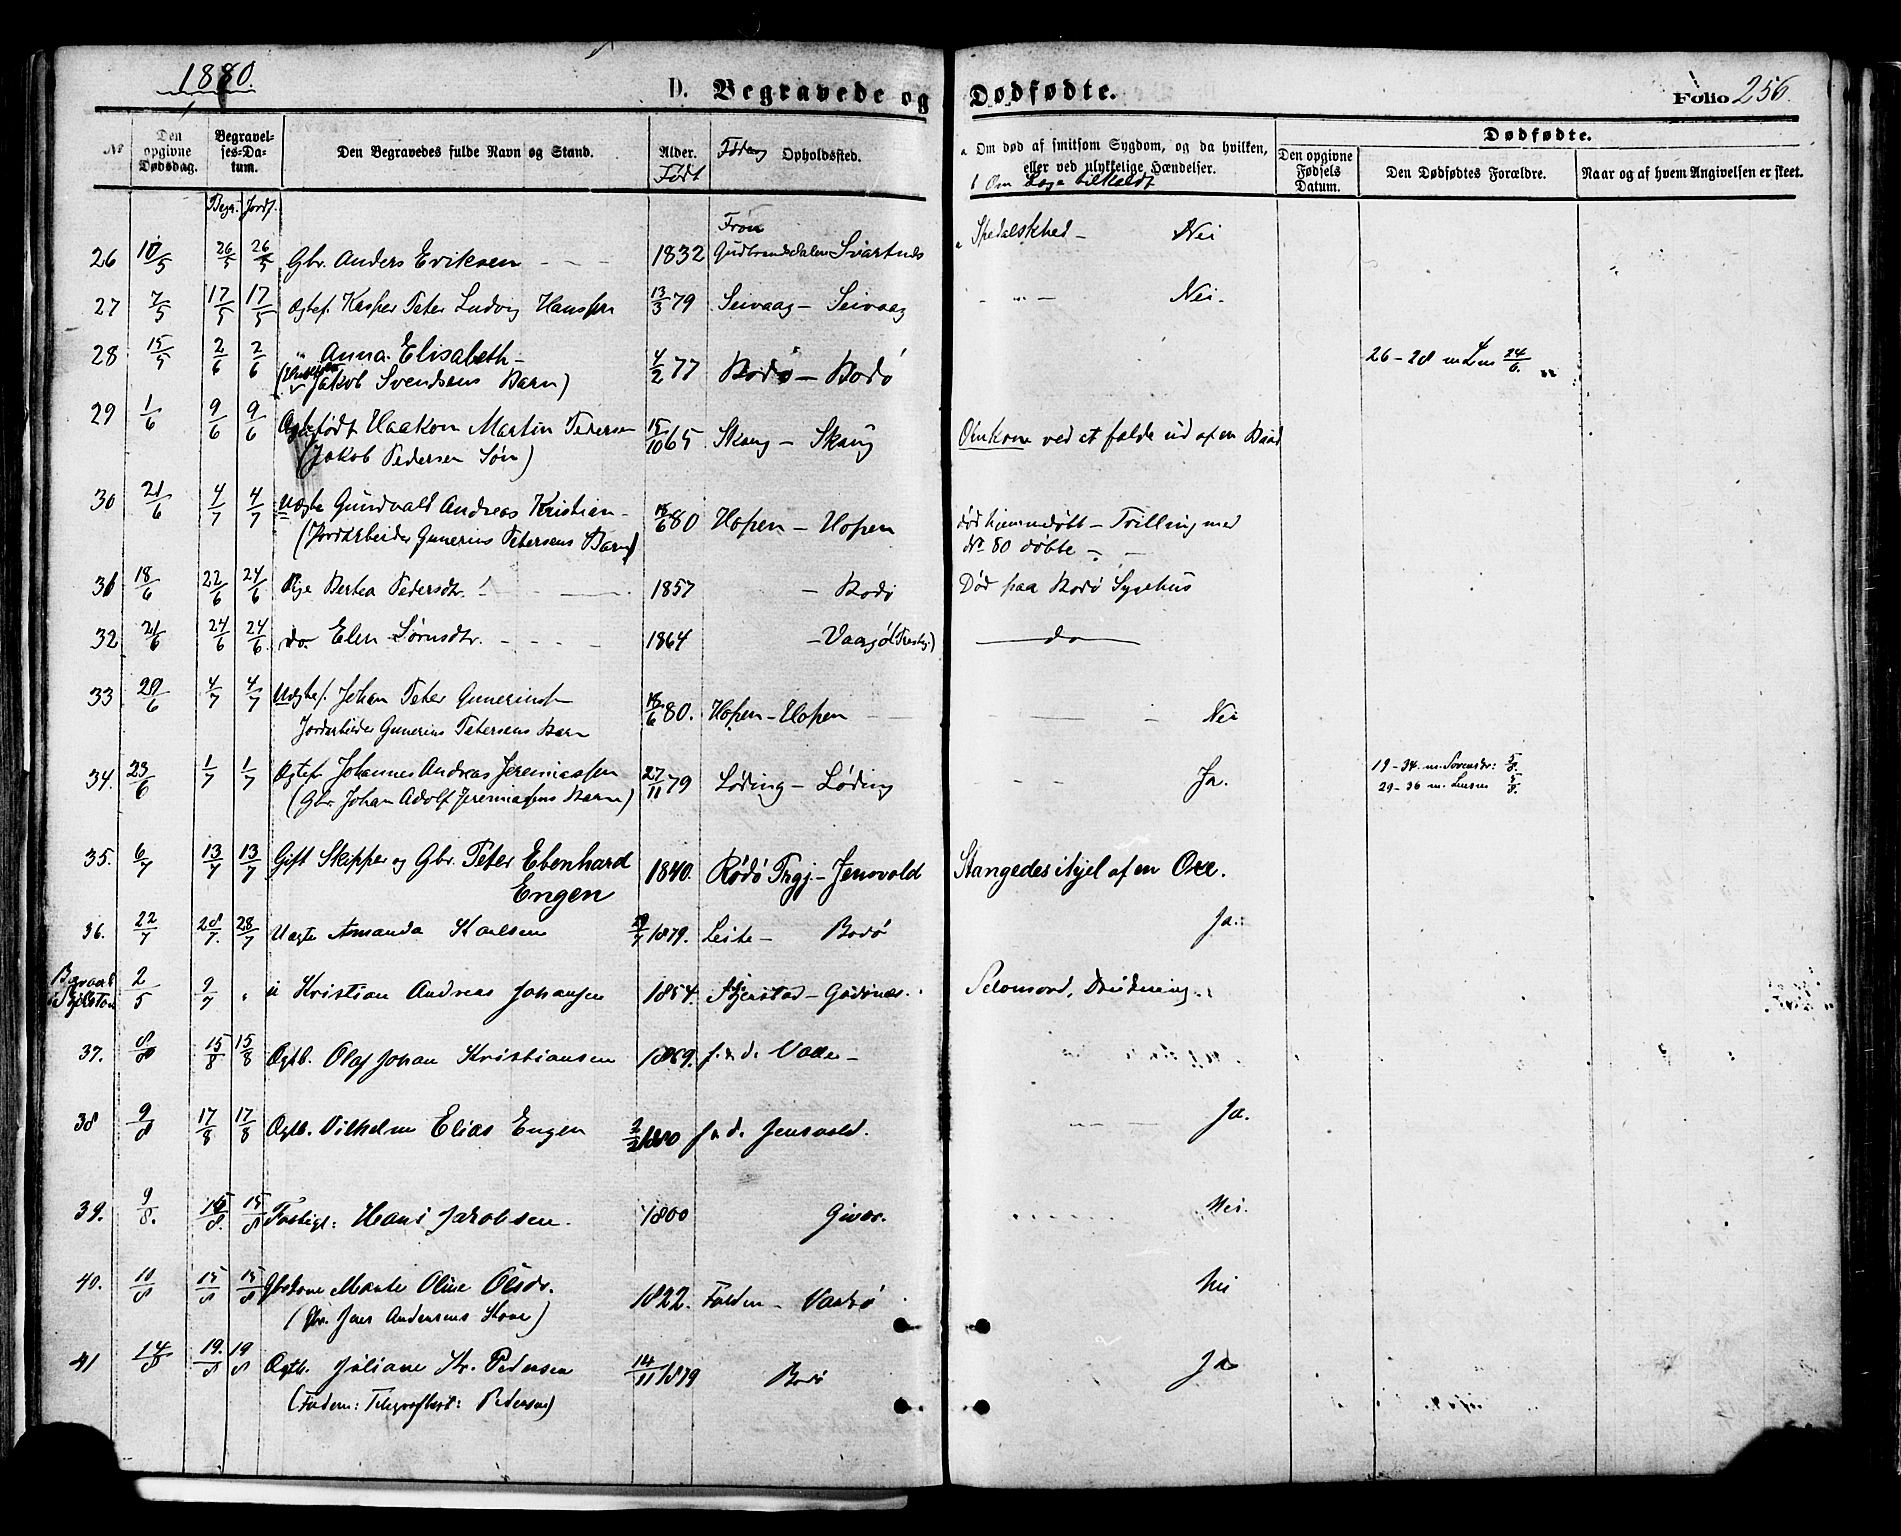 1880.
D. Begravede og Dødfødte.
Folio 256.
No
Den opgivne Dødsdag.
Begravelses-Datum.
Den Begravedes fulde Navn og Stand.
Alder. Født
Føde og Opholdssted.
a Om død af smitsom Sygdom, og da hvilken, eller ved ulykkelige Hændelser.
b Om Læge tilkaldt
Dødfødte.
Den opgivne Fødsels Datum.
Den Dødfødtes Forældre.
Naar og af hvem Angivelsen er skeet.
Begr. Jordf.
26 10/5 26/5 26/5 Gbr. Anders Eriksen 1832 Fron Gudbrandsdalen Svartnes Spedalskhed - Nei
27 7/5 17/5 17/5 Ægtef. Kasper Peter Ludvig Hanssen 13/3 79 Seivaag - Seivaag - " - Nei.
28 15/5 2/6 2/6 " Anna Elisabeth - 4/2 77 Bodø - Bodø
( Jakob Svendsens Barn)
26-28 24/6
29 1/6 9/6 9/6 Ægtefødt Haakon Martin Pedersen 15/10 65 Skaug - Skaug Omkom ved at falde ud af en Baad
(Jakob Pedersen Søn)
30 21/6 4/7 4/7 Uægte Gundvald Andreas Kristian - 18/6 80 Hopen - Hopen død hjemmedøbt - Trilling med
(Jordarbeider Gunerius Petersens Barn) No 80 døbte -
31 18/6 22/6 24/6 Pige Berthea Pedersdtr. 1857 - Bodø Død paa Bodø Sygehus
32 21/6 24/6 24/6 do. Elen Sørnsdtr. 1864 - Vaagø (Præstgj.) do
33 29/6 4/7 4/7 Uægtef. Johan Peter 18/6 80. Hopen - Hopen Nei
Jordarbeider Gunerius Petersens Barn
34. 23/6 1/7 1/7 Ægtef. Johannes Andreas Jeremiassen 27/11 79 Løding - Løding Ja.
(Gbr. Johan Adolf Jeremiassens Barn)
19-34. m. 5/8.
29-36 m. 5/8.
35. 6/7 13/7 13/7 Gift Skipper og Gbr. Peter Ebenhard 1840. Rødø Prgj. - Jensvold Stangedes ihjel af en Oxe.
Engen
36. 22/7 28/7. 28/7 Uægte Amanda Karlsen 1879. Leite - Bodø Ja.
Begravet i Gjelstad 2/5 9/7 " u Kristian Andreas Johansen 1854. Fjerstad - Godønes. Selvmord, Drukning.
37. 8/8 15/8 15/8 Ægtb. Olaf Johan Kristiansen 1869. f. & d. Valle -
38 9/8 17/8 17/8 Ægtb. Vilhelm Elias Engen 2/2 1880 f & d. Jensvold. Ja.
39. 9/8. 15/8. 15/8 Fattigl: Hans Jakobsen. 1800 Givær. Nei.
40. 10/8 15/8 15/8 Gbrkone Marte Oline Olsdr. 1822. Folden - Nei
(Gbr. Jens Andersens Kone)
41 14/8 19./8 19/8 Ægtb. Juliane Kr. Pedersen 14/11 1879 Bodø Ja
(Fadern: Telegrafbest: Pedersen)